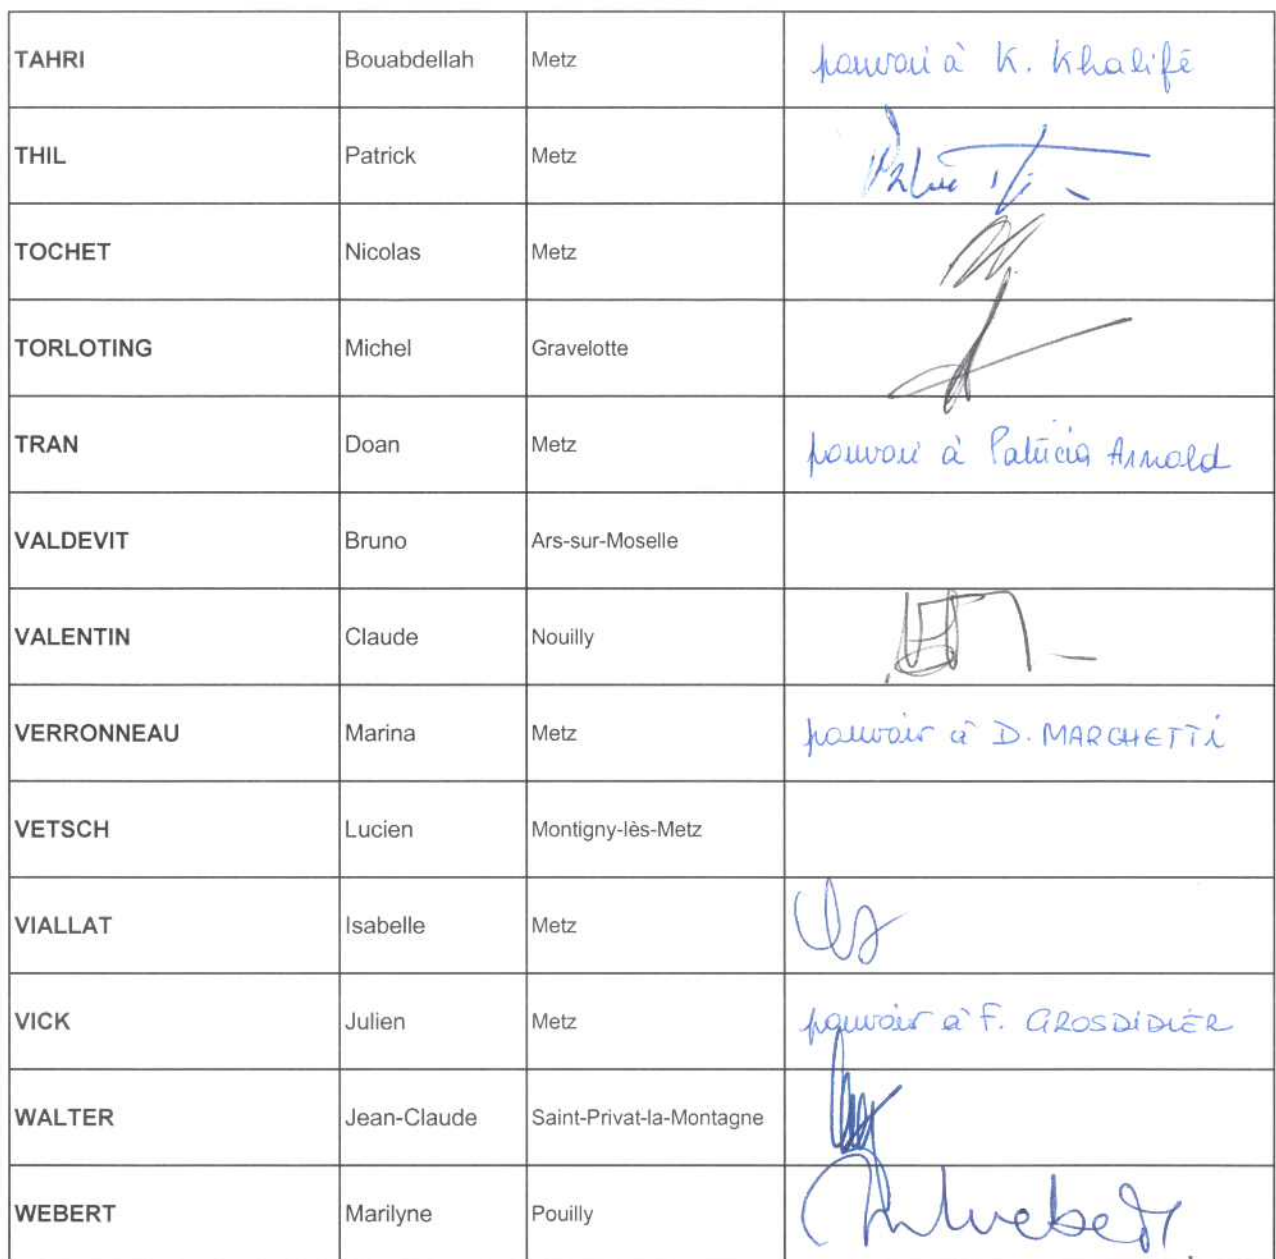 TAHRI Bouabdellah Metz pouvoir à K. Khalifé
THIL Patrick Metz
TOCHET Nicolas Metz
TORLOTING Michel Gravelotte
TRAN Doan Metz pouvoir à Patricia Arnold
VALDEVIT Bruno Ars-sur-Moselle
VALENTIN Claude Nouilly
VERRONNEAU Marina Metz pouvoir à D. MARCHETTI
VETSCH Lucien Montigny-lès-Metz
VIALLAT Isabelle Metz
VICK Julien Metz pouvoir à F. GROSDIDIER
WALTER Jean-Claude Saint-Privat-la-Montagne
WEBERT Marilyne Pouilly